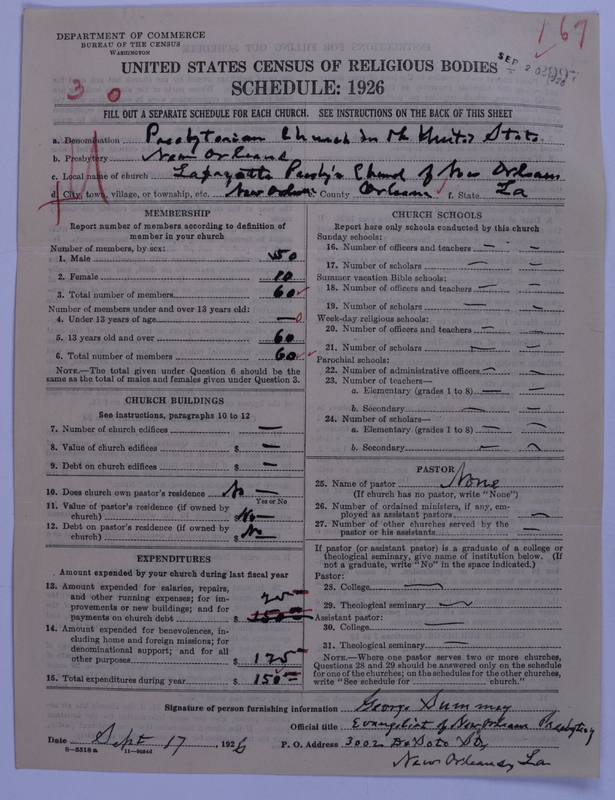 DEPARTMENT OF COMMERCE
BUREAU OF THE CENSUS
WASHINGTON
167
SEP 20 1926
UNITED STATES CENSUS OF RELIGIOUS BODIES
SCHEDULE: 1926
3 0
FILL OUT A SEPARATE SCHEDULE FOR EACH CHURCH. SEE INSTRUCTIONS ON THE BACK OF THIS SHEET
a. Denomination Presbyterian Church in the United States
b. Presbytery New Orleans
c. Local name of church Lafayette Presby'n Church of New Orleans
d. City, town, village, or township, etc. New Orleans e. County Orleans f. State La
MEMBERSHIP
Report number of members according to definition of
member in your church
Number of members, by sex:
1. Male 50
2. Female 10
3. Total number of members 60
Number of members under and over 13 years old:
4. Under 13 years of age — 0
5. 13 years old and over 60
6. Total number of members 60
NOTE.—The total given under Question 6 should be the
same as the total of males and females given under Question 3.
CHURCH BUILDINGS
See instructions, paragraphs 10 to 12
7. Number of church edifices —
8. Value of church edifices $ —
9. Debt on church edifices $ —
10. Does church own pastor's residence No —
Yes or No
11. Value of pastor's residence (if owned by
church) $ No —
12. Debt on pastor's residence (if owned by
church) $ No
EXPENDITURES
Amount expended by your church during last fiscal year
13. Amount expended for salaries, repairs,
and other running expenses; for im-
provements or new buildings; and for
payments on church debt $ 150 25
14. Amount expended for benevolences, in-
cluding home and foreign missions; for
denominational support; and for all
other purposes $ 125
15. Total expenditures during year $ 150
CHURCH SCHOOLS
Report here only schools conducted by this church
Sunday schools:
16. Number of officers and teachers — —
17. Number of scholars — —
Summer vacation Bible schools:
18. Number of officers and teachers — —
19. Number of scholars — —
Week-day religious schools:
20. Number of officers and teachers — —
21. Number of scholars — —
Parochial schools:
22. Number of administrative officers — —
23. Number of teachers—
a. Elementary (grades 1 to 8) — —
b. Secondary — —
24. Number of scholars—
a. Elementary (grades 1 to 8) — —
b. Secondary — —
PASTOR
25. Name of pastor None
(If church has no pastor, write "None")
26. Number of ordained ministers, if any, em-
ployed as assistant pastors —
27. Number of other churches served by the
pastor or his assistants —
If pastor (or assistant pastor) is a graduate of a college or
theological seminary, give name of institution below. (If
not a graduate, write "No" in the space indicated.)
Pastor:
28. College —
29. Theological seminary —
Assistant pastor:
30. College —
31. Theological seminary —
NOTE.—Where one pastor serves two or more churches,
Questions 28 and 29 should be answered only on the schedule
for one of the churches; on the schedules for the other churches,
write "See schedule for church."
Signature of person furnishing information George Summey
Official title Evangelist of New Orleans Presbytery
Date Sept 17, 1926 P. O. Address 3002 De Soto St
New Orleans, La
8-5518a